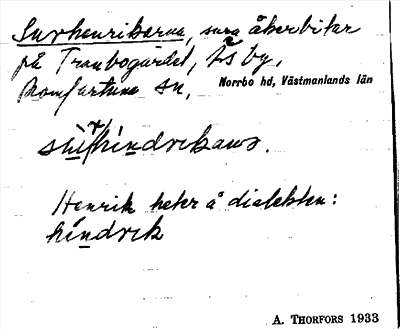 Surhenrikarna, sura åkerbitar
på Tranbogärdet, Ås by,
Romfartuna sn, Norrbo hd, Västmanlands län
hindrikaws.
Henrik heter å dialekten:
hindrik
A. THORFORS 1933